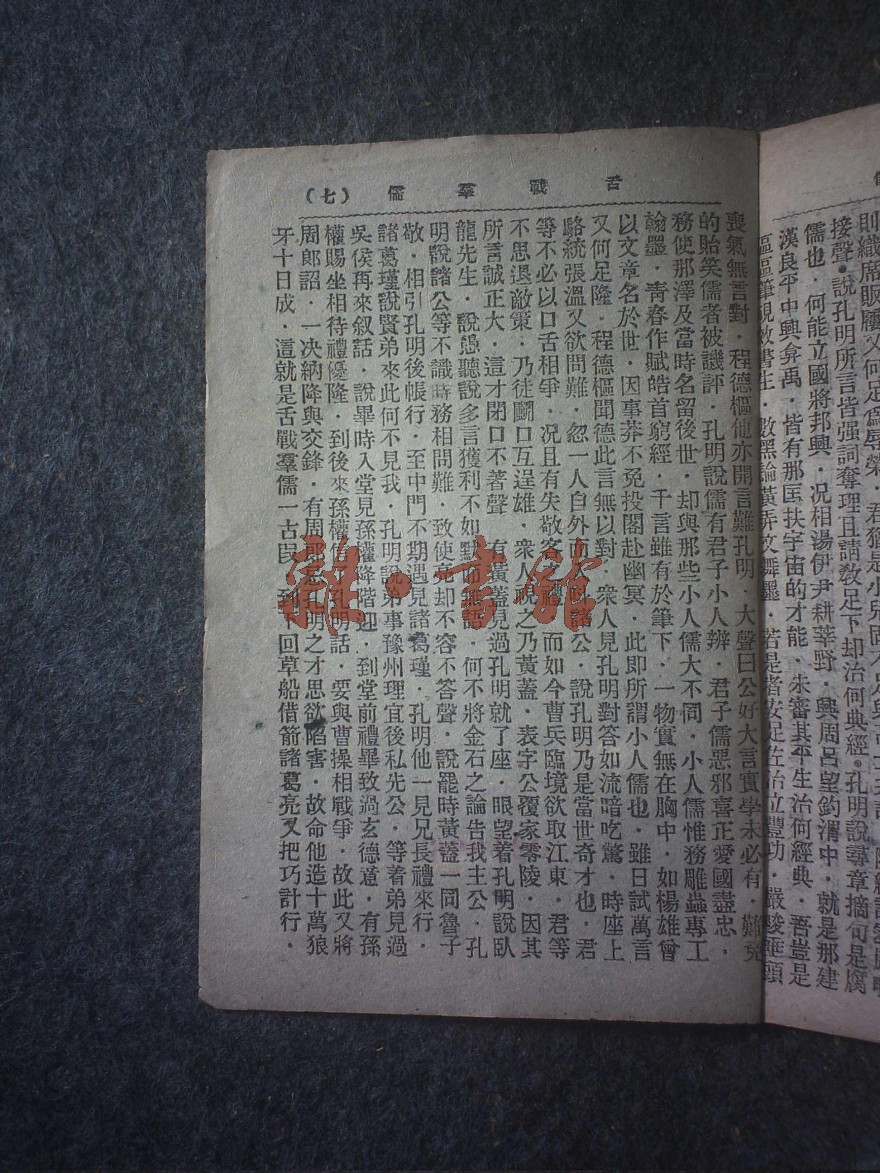 則織席販屨又何足爲辱榮．君猶是小兒
接聲．說孔明所言皆强詞奪理且請敎足下却治何典經．孔明說尋章摘句是腐
儒也．何能立國將邦興．況相湯伊尹耕莘野．興周呂望釣渭中．就是那建
漢良平中興弇禹．皆有那匡扶宇宙的才能．未審其平生治何經典．吾豈是
區區筆硯效書生．數黑論黃弄文舞墨．若是者安足佐治立豐功．嚴畯垂頭
舌戰羣儒（七）
喪氣無言對．程德樞他亦開言難孔明．大聲曰公好大言實學未必有．難免
的貽笑儒者被譏評．孔明說儒有君子小人辨．君子儒惡邪喜正愛國盡忠．
務使那澤及當時名留後世．却與那些小人儒大不同．小人儒惟務雕蟲專工
翰墨．青春作賦皓首窮經．千言雖有於筆下．一物實無在胸中．如楊雄曾
以文章名於世．因事莽不免投閣赴幽冥．此即所謂小人儒也．雖日試萬言
又何足隆．程德樞聞德此言無以對．衆人見孔明對答如流暗吃驚．時座上
駱統張溫又欲問難．忽一人自外而諸公．說孔明乃是當世奇才也．君
等不必以口舌相爭．况且有失敬客之禮．而如今曹兵臨境欲取江東．君等
不思退敵策．乃徒鬭口互逞雄．衆人視之乃黃蓋．表字公覆家零陵．因其
所言誠正大．這才閉口不著聲．有黃蓋見過孔明就了座．眼望着孔明說臥
龍先生．說愚聽說多言獲利不如默而無語．何不將金石之論告我主公．孔
明說諸公等不識時務相問難．致使亮却不容不答聲．說罷時黃蓋一同魯子
敬．相引孔明後帳行．至中門不期遇見諸葛瑾．孔明他一見兄長禮來行．
諸葛瑾說賢弟來此何不見我．孔明說弟事豫州理宜後私先公．等着弟見過
吳侯再來叙話．說畢時入堂見孫權降堦迎．到堂前禮畢致過玄德意．有孫
權賜坐相待禮優隆．到後來孫權信孔明話．要與曹操相戰爭．故此又將
周郎詔．一決納降與交鋒．有周郎忌孔明之才思欲陷害．故命他造十萬狼
牙十日成．這就是舌戰羣儒一古段．到下回草船借箭諸葛亮又把巧計行．
雜．書館